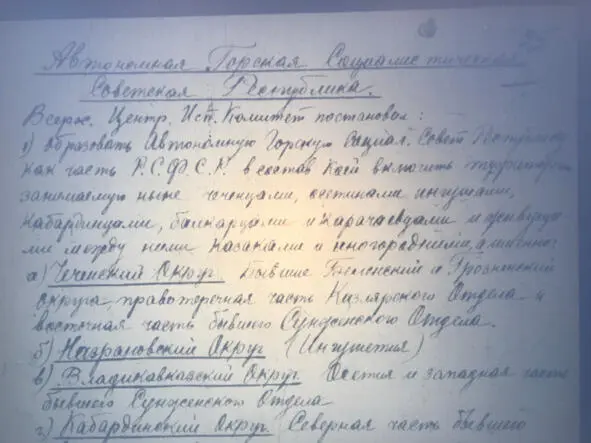 Автономная Горская Социалистическая
Советская Республика.
Всерос. Центр. Исп. Комитет постановил:
1) образовать Автономную Горскую Социал. Совет
как часть Р.С.Ф.С.Р. в состав коей включить
занимаемую ныне чеченцами, осетинами ингушами,
кабардинцами, балкарцами и карачаевцами и
ми между ними казаками и иногородними, а именно
а) Чеченский Округ. Бывшие и Грозненский
округа, правотеречная часть Кизлярского Отдела и
восточная часть бывшего Сунженского Отдела.
б) Назрановский Округ (Ингушетия)
в) Владикавказский Округ Осетия и западная часть
бывшего Сунженского Отдела
г) Кабардинский Округ. Северная часть бывшего